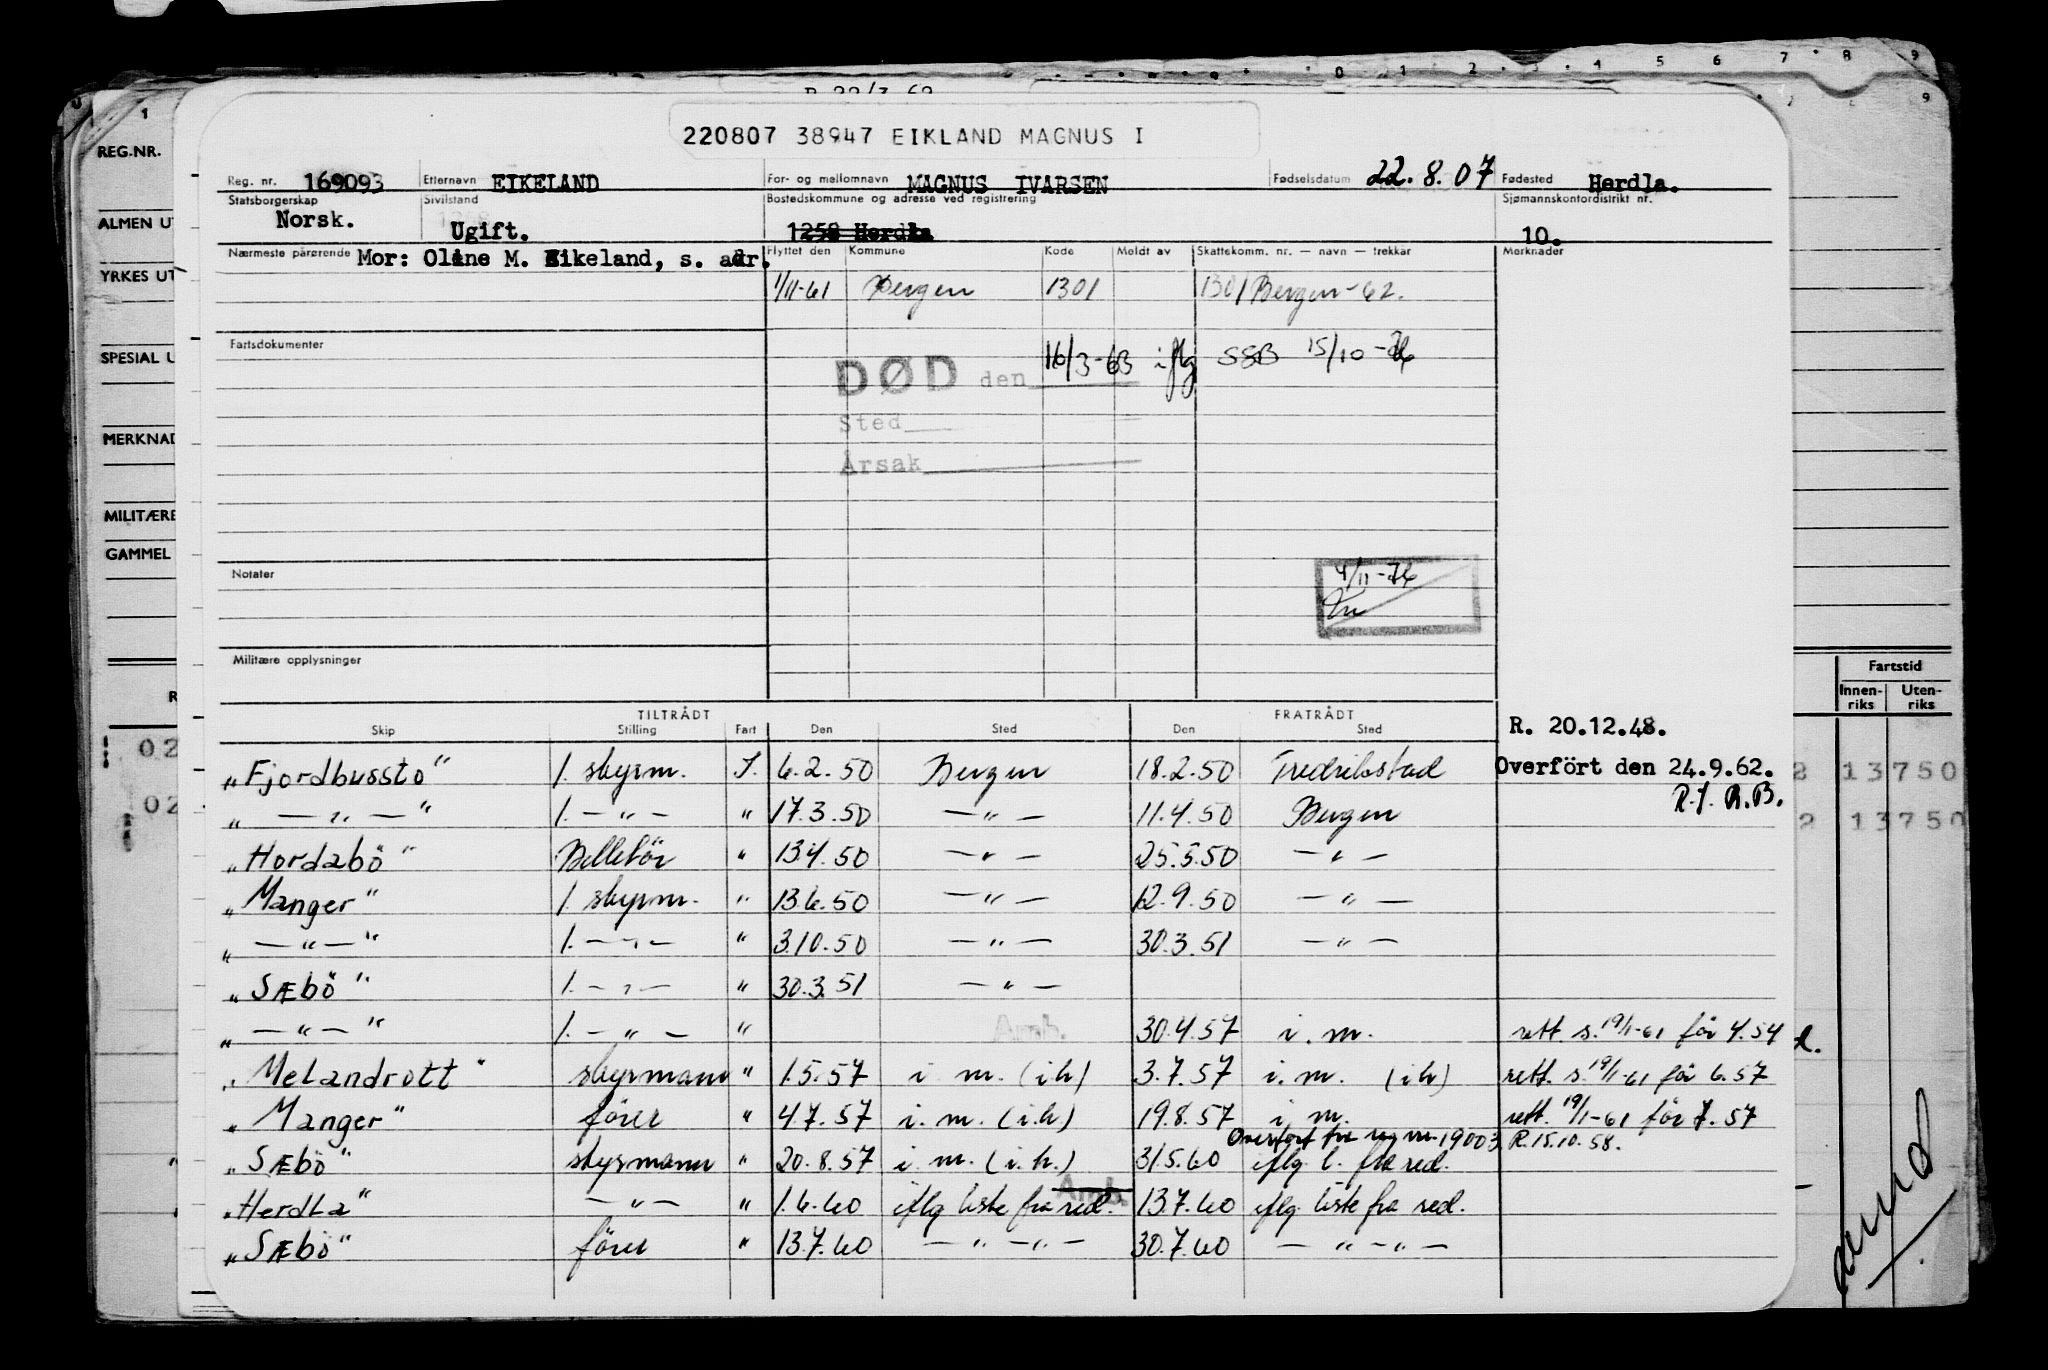 0 1 2 3 4 5 6 7 8 9
1 9
220807 38947 EIKLAND MAGNUS I
REG.NR.
Reg. nr. 169093 Etternavn EIKELAND For- og mellomnavn MAGNUS IVARSEN Fødselsdatum 22.8.07 Fødested Herdla.
Statsborgerskap Norsk. Sivilstand Ugift. Bostedskommune og adresse ved registrering 1258 Herdla Sjømannskontordistrikt nr. 10.
ALMEN UT
Nærmeste pårørende Mor: Oline M. Eikeland, s. adr. Flyttet den Kommune Kode Meldt av Skattekomm. nr. — navn — trekkår Merknader
YRKES UT
1/11-61 Bergen 1301 1301 Bergen-62.
Fartsdokumenter
SPESIAL U
DØD den 16/3-63 iflg SSB 15/10-76
Sted
Årsak
MERKNAD
MILITÆRE
GAMMEL
Notater
4/11-76
Militære opplysninger
Fartstid
Innen-riks Uten-riks
R
TILTRÅDT FRATRÅDT
Skip Stilling Fart Den Sted Den Sted
R. 20.12.48.
02 "Fjordbussto" 1. styrm. I. 6.2.50 Bergen 18.2.50 Fredrikstad Overført den 24.9.62. 2 13750
R.J. R.B.
02 " — " — " 1. — " — " 17.3.50 — " — 11.4.50 Bergen 2 13750
"Hordabö" Billetör " 13.4.50 — " — 25.5.50 — " —
"Manger" 1. styrm. " 13.6.50 — " — 12.9.50 — " —
" — " — " 1. — " — " 3.10.50 — " — 30.3.51 — " —
"SÆbö" 1. — " — " 30.3.51 — " —
" — " — " 1. — " — " Amb. 30.4.57 i. m. rett. s. 19/1-61 för 4.54
"Melandrott" styrmann " 1.5.57 i. m. (i.h) 3.7.57 i. m. (i h) rett. s. 19/1-61 för 6.57
"Manger" förer " 4.7.57 i. m. (i.h) 19.8.57 i. m. rett. 19/1-61 för 7.57
Overfört fra reg nr. 19003 R.15.10.58.
"SÆbö" styrmann " 20.8.57 i. m. (i.h.) 31.5.60 iflg. l. fra red.
"Herdla" — " — " 1.6.60 iflg liste fra red. Amb. 13.7.60 iflg. liste fra red.
"SÆbö" förer " 13.7.60 — " — " — 30.7.60 — " — " —